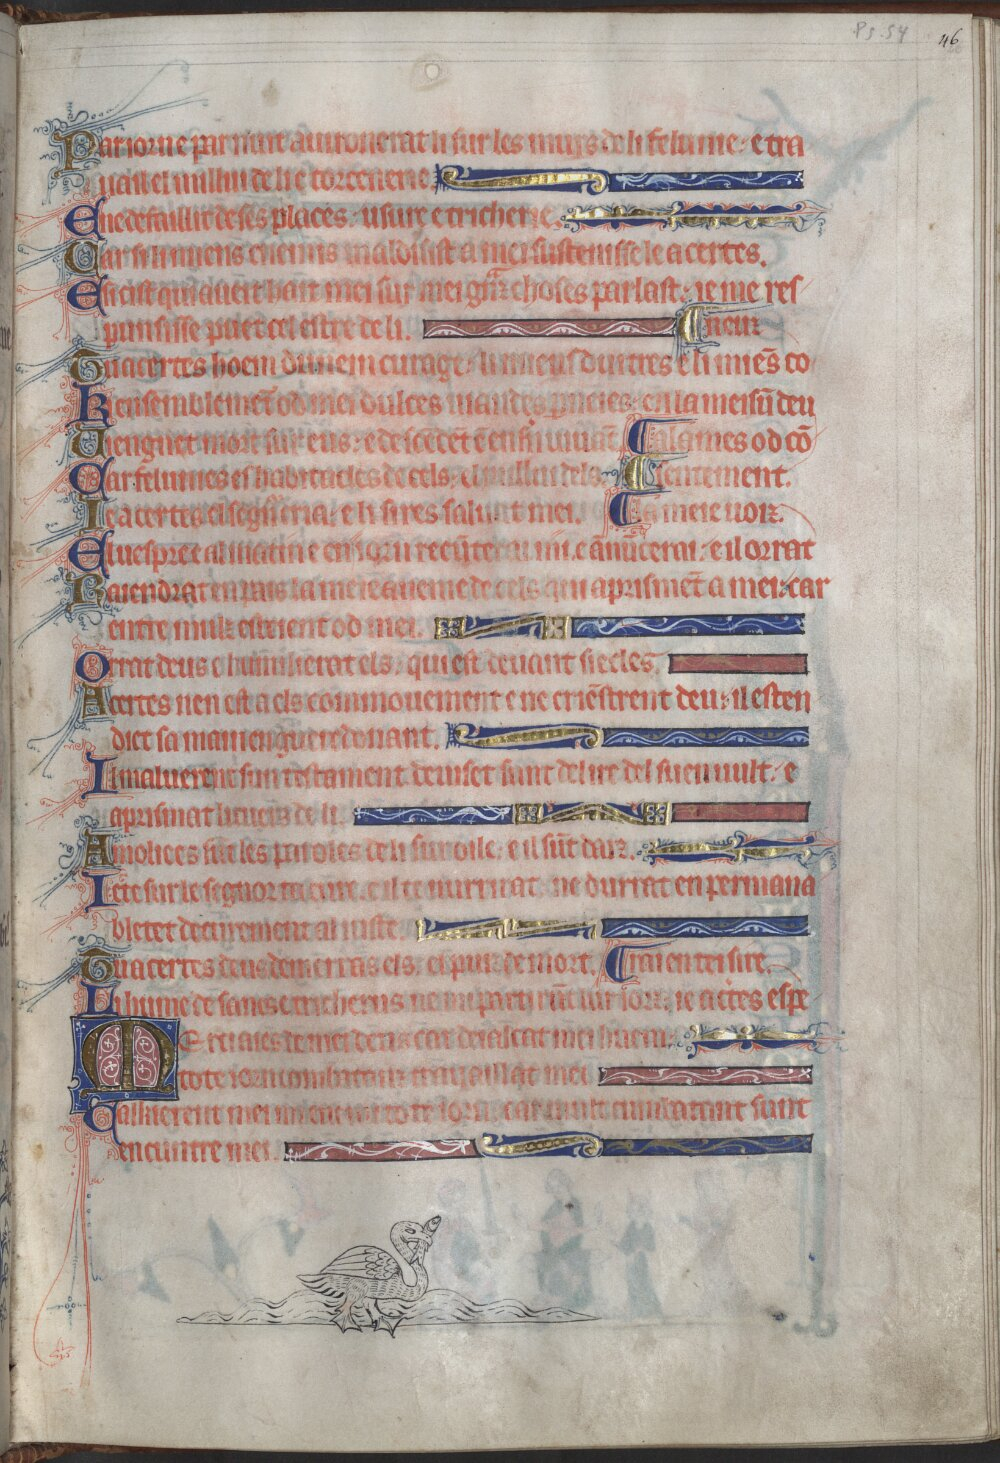 Ps. 54 46
Par iorn e par nuit auironerat li sur les murs de li felunie e tra
uail el milliu de lie e torcenerie
E ne defaillit de ses places usure e tricherie.
Car si li miens enemis maldisist a mei sustenisse le acertes.
E si cist qui aueit hait mei sur mei granz choses parlast ie me res
punsisse puet cel estre de li. E neur
Tu acertes hoem dunem curage li miens duitres e li miens co
ki ensemblement od mei dulces uiandes perneies en la meisun deu
Uienget mort sur eus e descendent en enfern uiuant. Alames od con
Car felunies es habitacles de cels el milliu dels. sentement.
Ie acertes al segn cria e li sires salua mei. La meie uoiz.
El uespree al matin e en iorn recunterai mi e anuncerai e il orrat
Raiendrat en pais la meie aneme de cels qui aprisment a mei car
entre mulz esteient od mei.
Orrat deus e humilierat els qui est deuant siecles.
Acertes nen est a els commouement e ne crienstrent deu il esten
diet sa main en guerredonant.
Il maluerent sun testament deuiset sunt del ire del suen uult e
aprismat li cuers de li.
Amoliees sunt les paroles de li sur oile e il sunt darz.
Iete sur le segnor ta cure e il te nurrirat ne durrat en permana
bletet decurement al iuste.
Tu acertes deus demerras els el puiz de mort. Trai en tei sire.
Li hume de sancs e tricherus ne mi partirunt lur iorz ie acertes espe
Merci aies de mei deus car defulcat mei huem
tote iorn combatanz trauaillat mei
Defulerent mei mi enemi tote iorn car mult cumbatant sunt
encuntre mei.